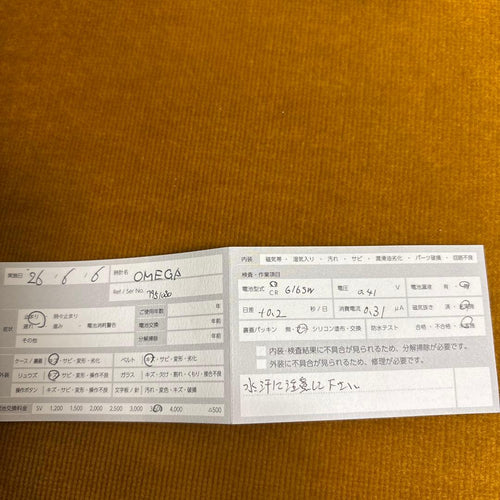 実施日 '26 . 6 . 6
時計名 OMEGA
Ref / Ser No.
症状 止まり 時々止まり
遅れ ・ 進み ・ 電池消耗警告
その他
ご使用年数 年
電池交換 年前
分解掃除 年前
外装
ケース / 裏蓋 キズ・サビ・変形・劣化
ベルト キズ・サビ・変形・劣化
リュウズ キズ・サビ・変形・操作不良
ガラス キズ・欠け・割れ・くもり・接合不良
操作ボタン キズ・サビ・変形・操作不良
文字板 / 針 汚れ・変色・キズ・破損
電池交換料金 SV 1,200 1,500 2,000 2,500 3,000 4,000
内装 磁気帯 ・ 湿気入り ・ 汚れ ・ サビ ・ 潤滑油劣化 ・ パーツ破損 ・ 回路不良
検査・作業項目
電池型式 CR
電圧 V
電池漏液 有・
日差 +0.2 秒 / 日
消費電流 0.31 μA
磁気抜き 済・
裏蓋パッキン 無・ シリコン塗布・交換
防水テスト 合格・不合格・
内装・検査結果に不具合が見られるため、分解掃除が必要です。
外装に不具合が見られるため、修理が必要です。
水汗に注意して下さい